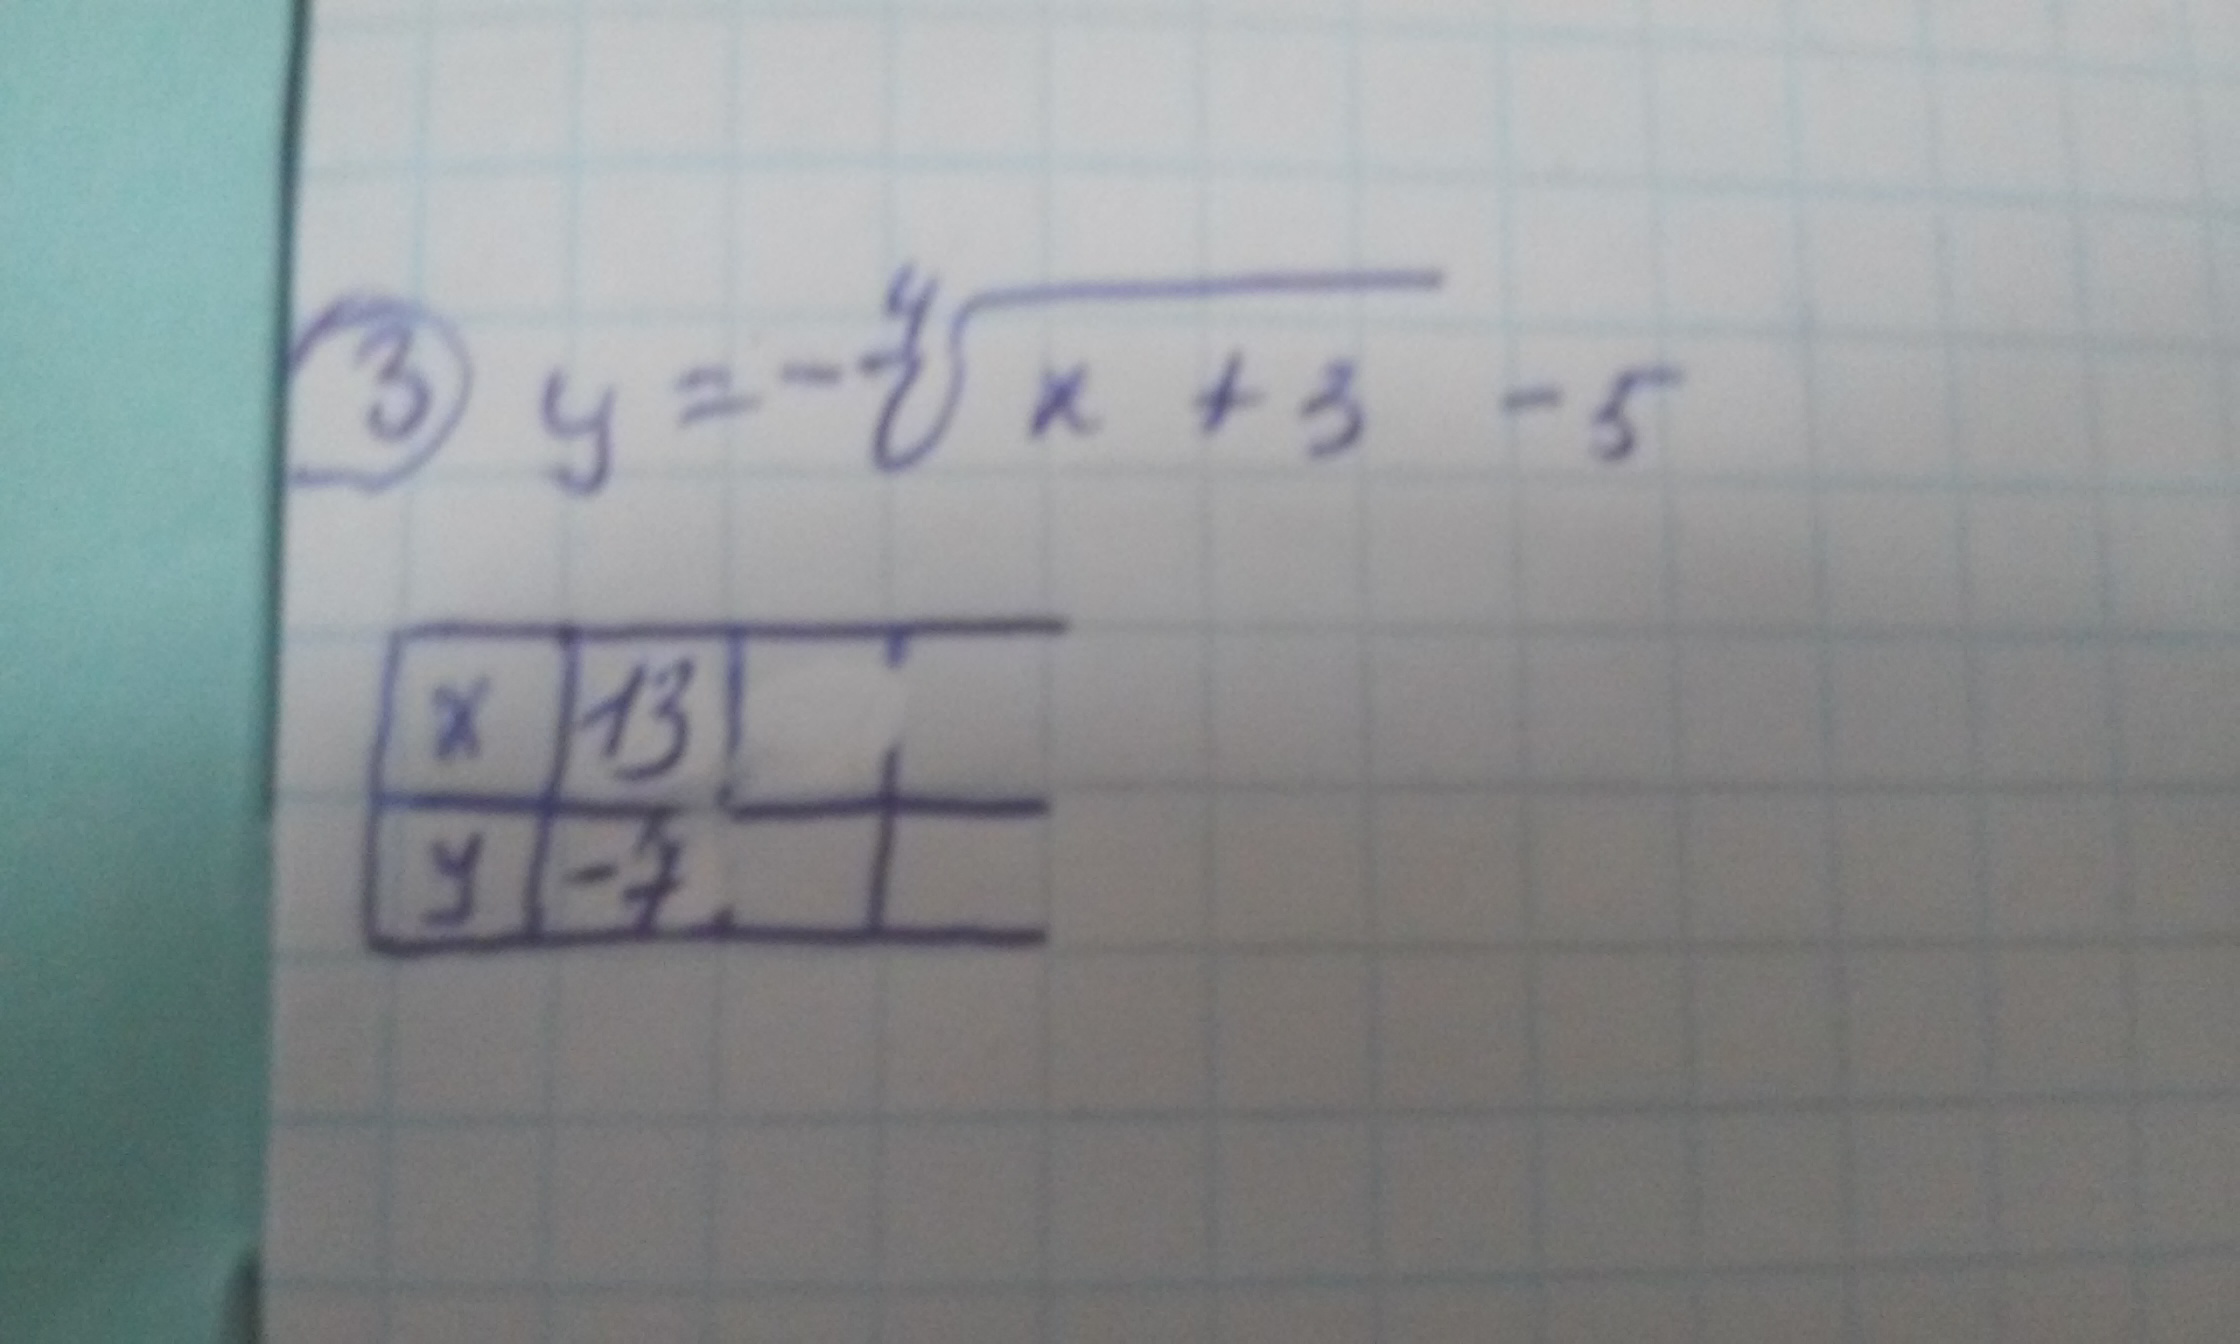 ③ y = -∜(x + 3) - 5
x 13
y -7